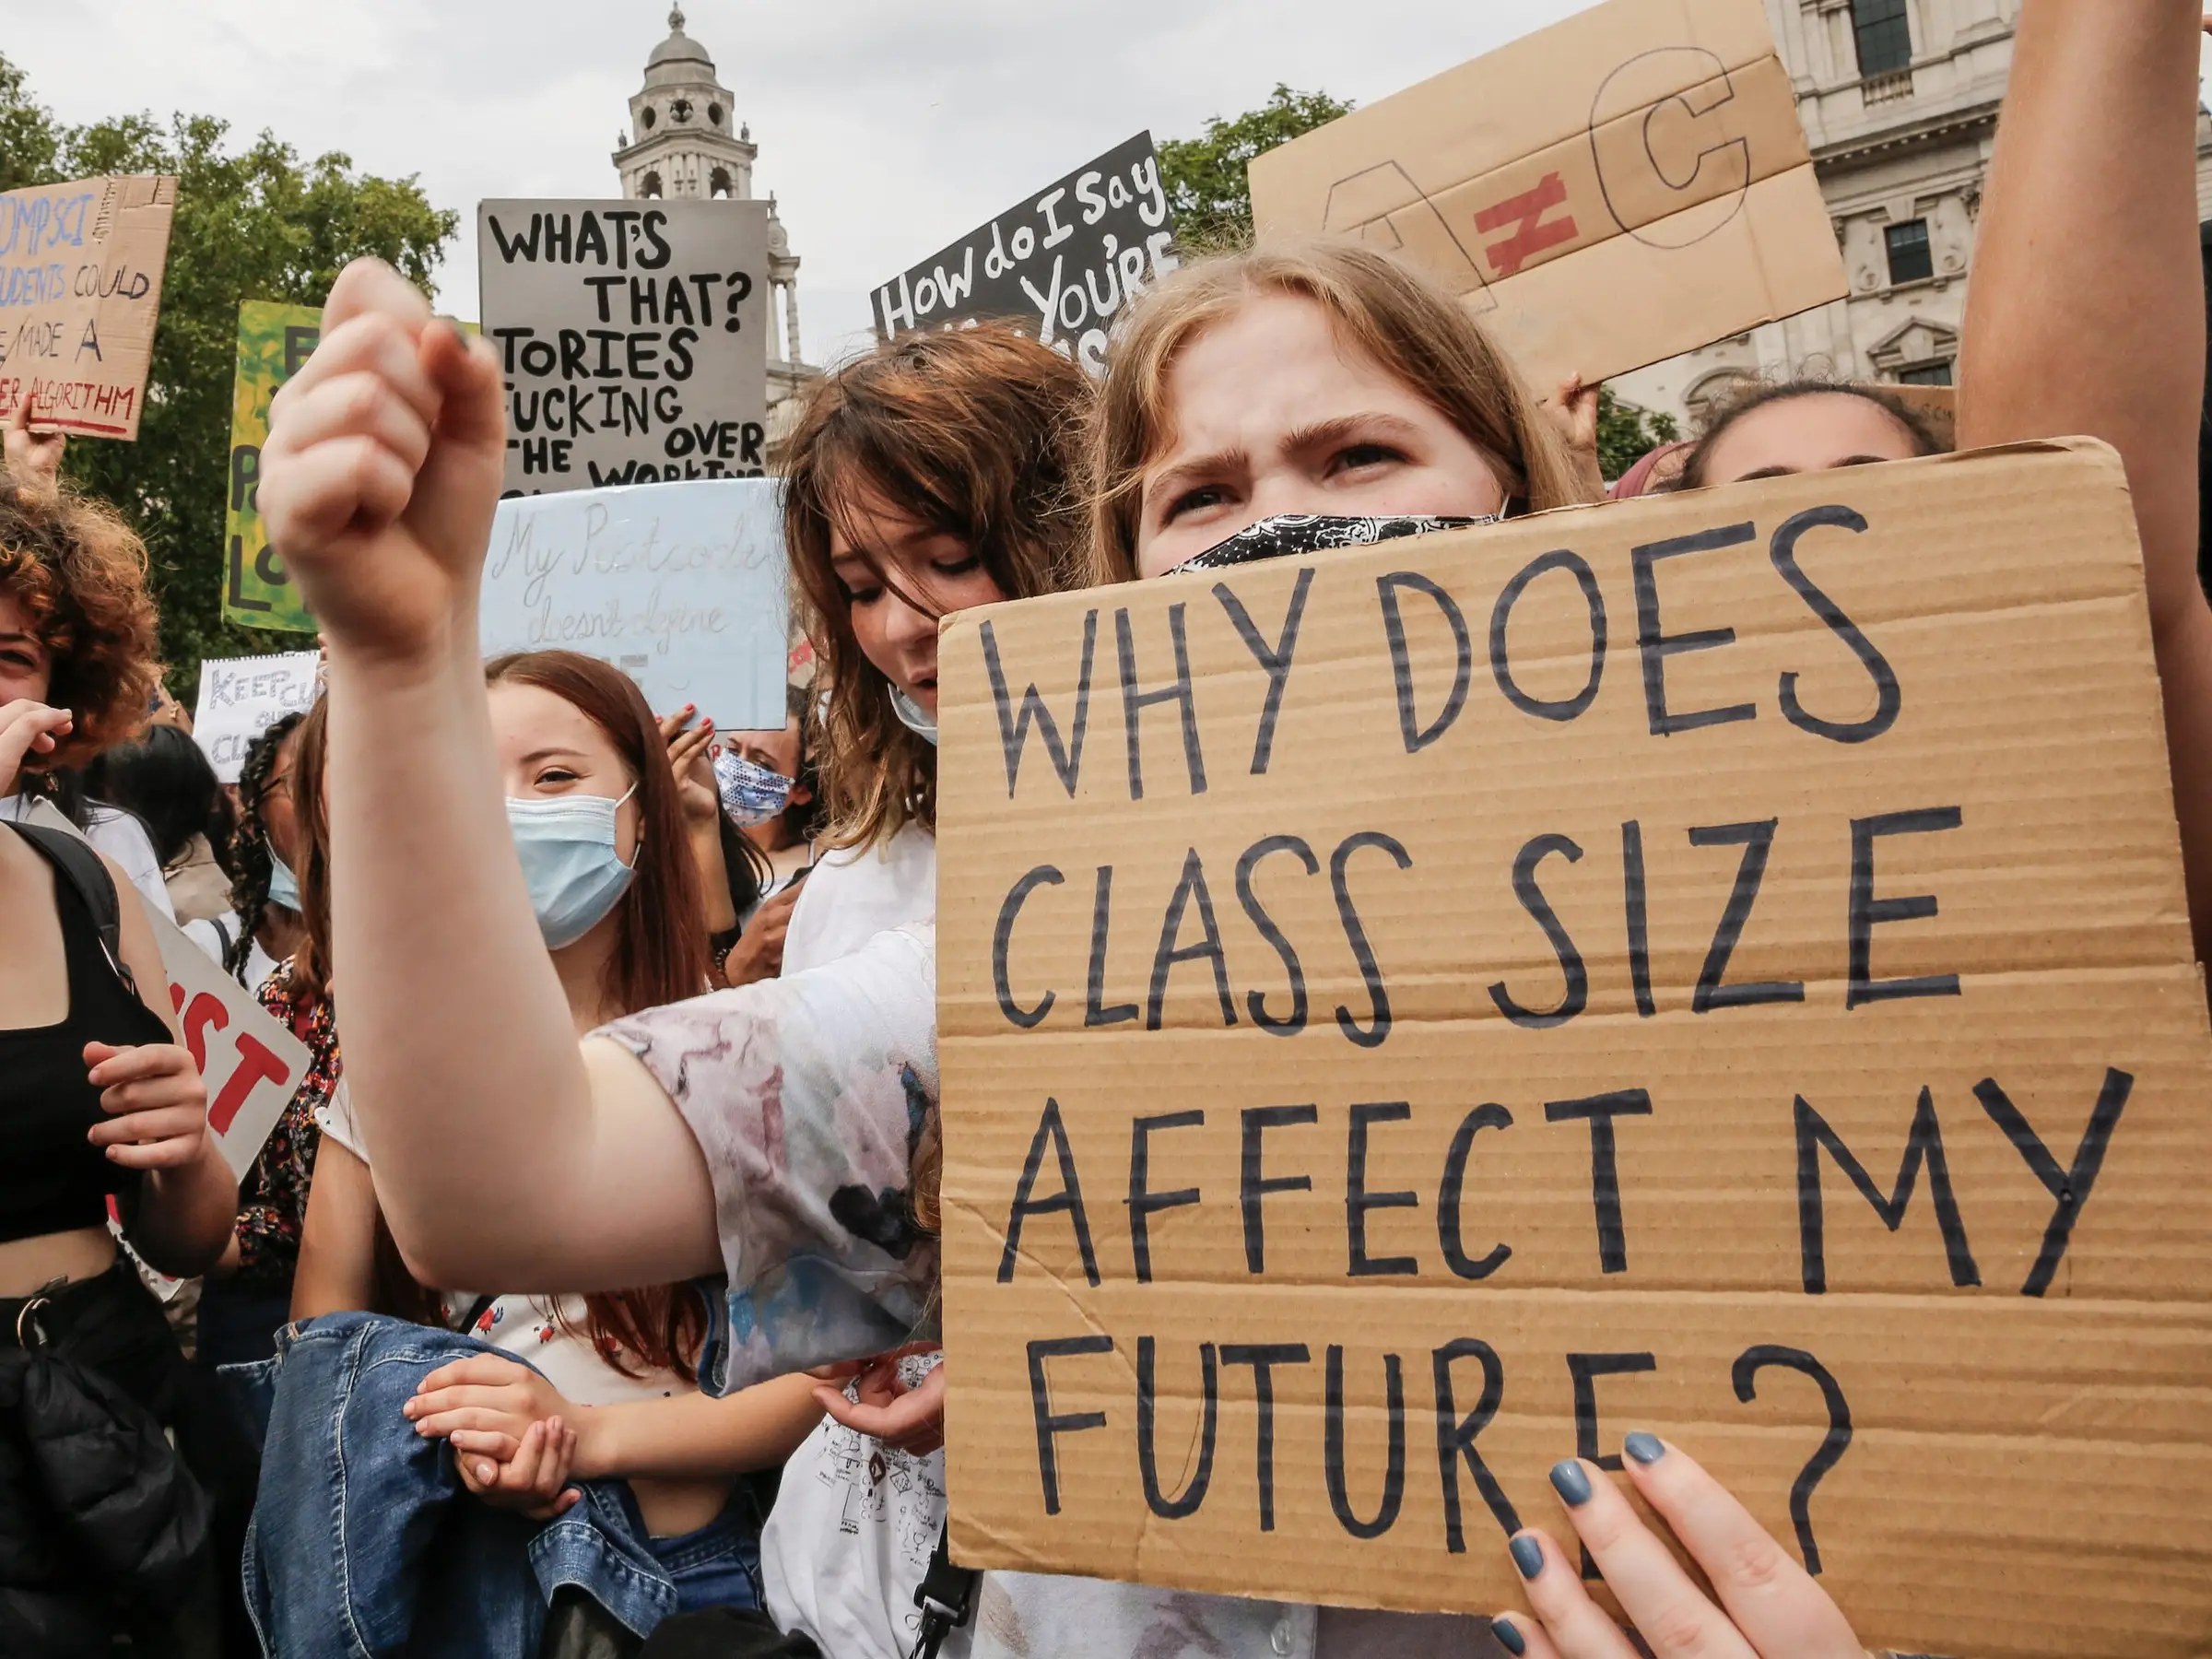 COMPSCI
STUDENTS COULD
MADE A
ALGORITHM
WHAT'S
THAT?
TORIES
FUCKING
OVER
THE WORKING
How do I Say
You're
A ≠ C
My Postcode
doesn't define
KEEP
WHY DOES
CLASS SIZE
AFFECT MY
FUTURE?